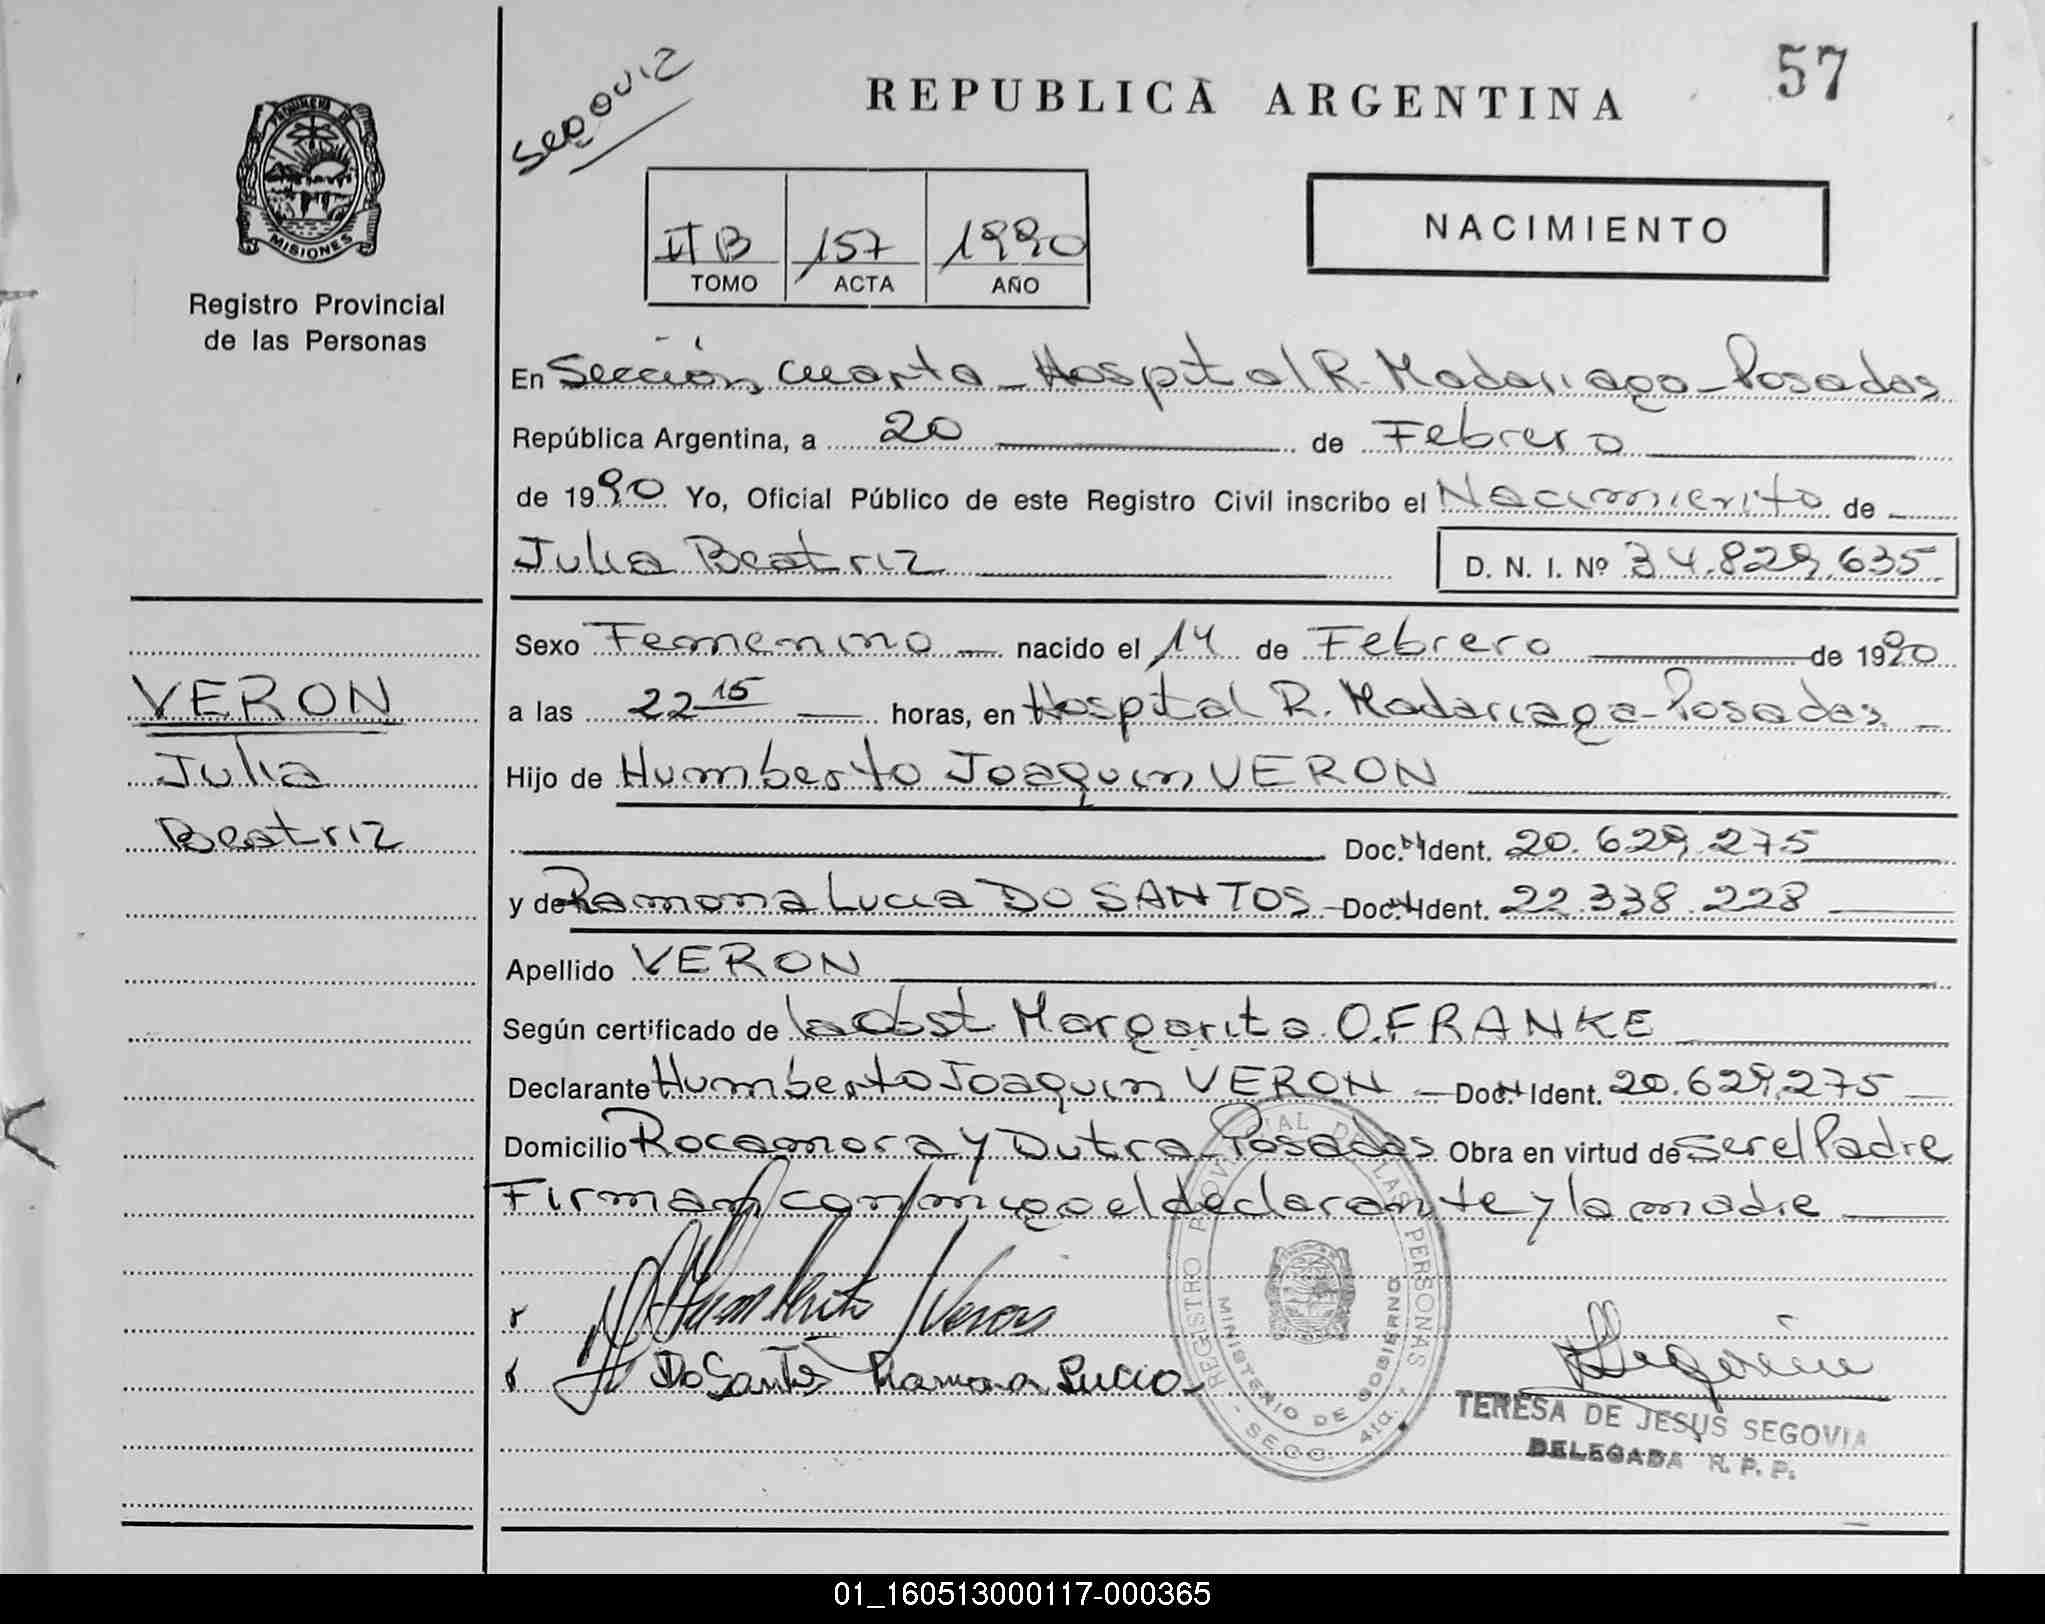 57
Segovia
REPUBLICA ARGENTINA
PROVINCIA DE
MISIONES
Registro Provincial
de las Personas
II B 157 1990
TOMO ACTA AÑO
NACIMIENTO
En Sección cuarta - Hospital R. Madariaga - Posadas
República Argentina, a 20 de Febrero
de 1990 Yo, Oficial Público de este Registro Civil inscribo el Nacimiento de
Julia Beatriz D. N. I. Nº 34.829.635
Sexo Femenino nacido el 14 de Febrero de 1990
a las 22 15 horas, en Hospital R. Madariaga - Posadas
Hijo de Humberto Joaquin VERON
Doc. N Ident. 20.629.275
y de Ramona Lucia DO SANTOS - Doc. N Ident. 22.338.228
Apellido VERON
Según certificado de la Obst. Margarita O. FRANKE
Declarante Humberto Joaquin VERON - Doc. N Ident. 20.629.275
Domicilio Rocamora y Dutra - Posadas Obra en virtud de ser el Padre
Firman conmigo el declarante y la madre
VERON
Julia
Beatriz
Humberto J Veron
Do Santos Ramona Lucia
REGISTRO PROVINCIAL DE LAS PERSONAS
MINISTERIO DE GOBIERNO
- SECC. 4ta. -
Segovia
TERESA DE JESUS SEGOVIA
DELEGADA R. P. P.
01_160513000117-000365